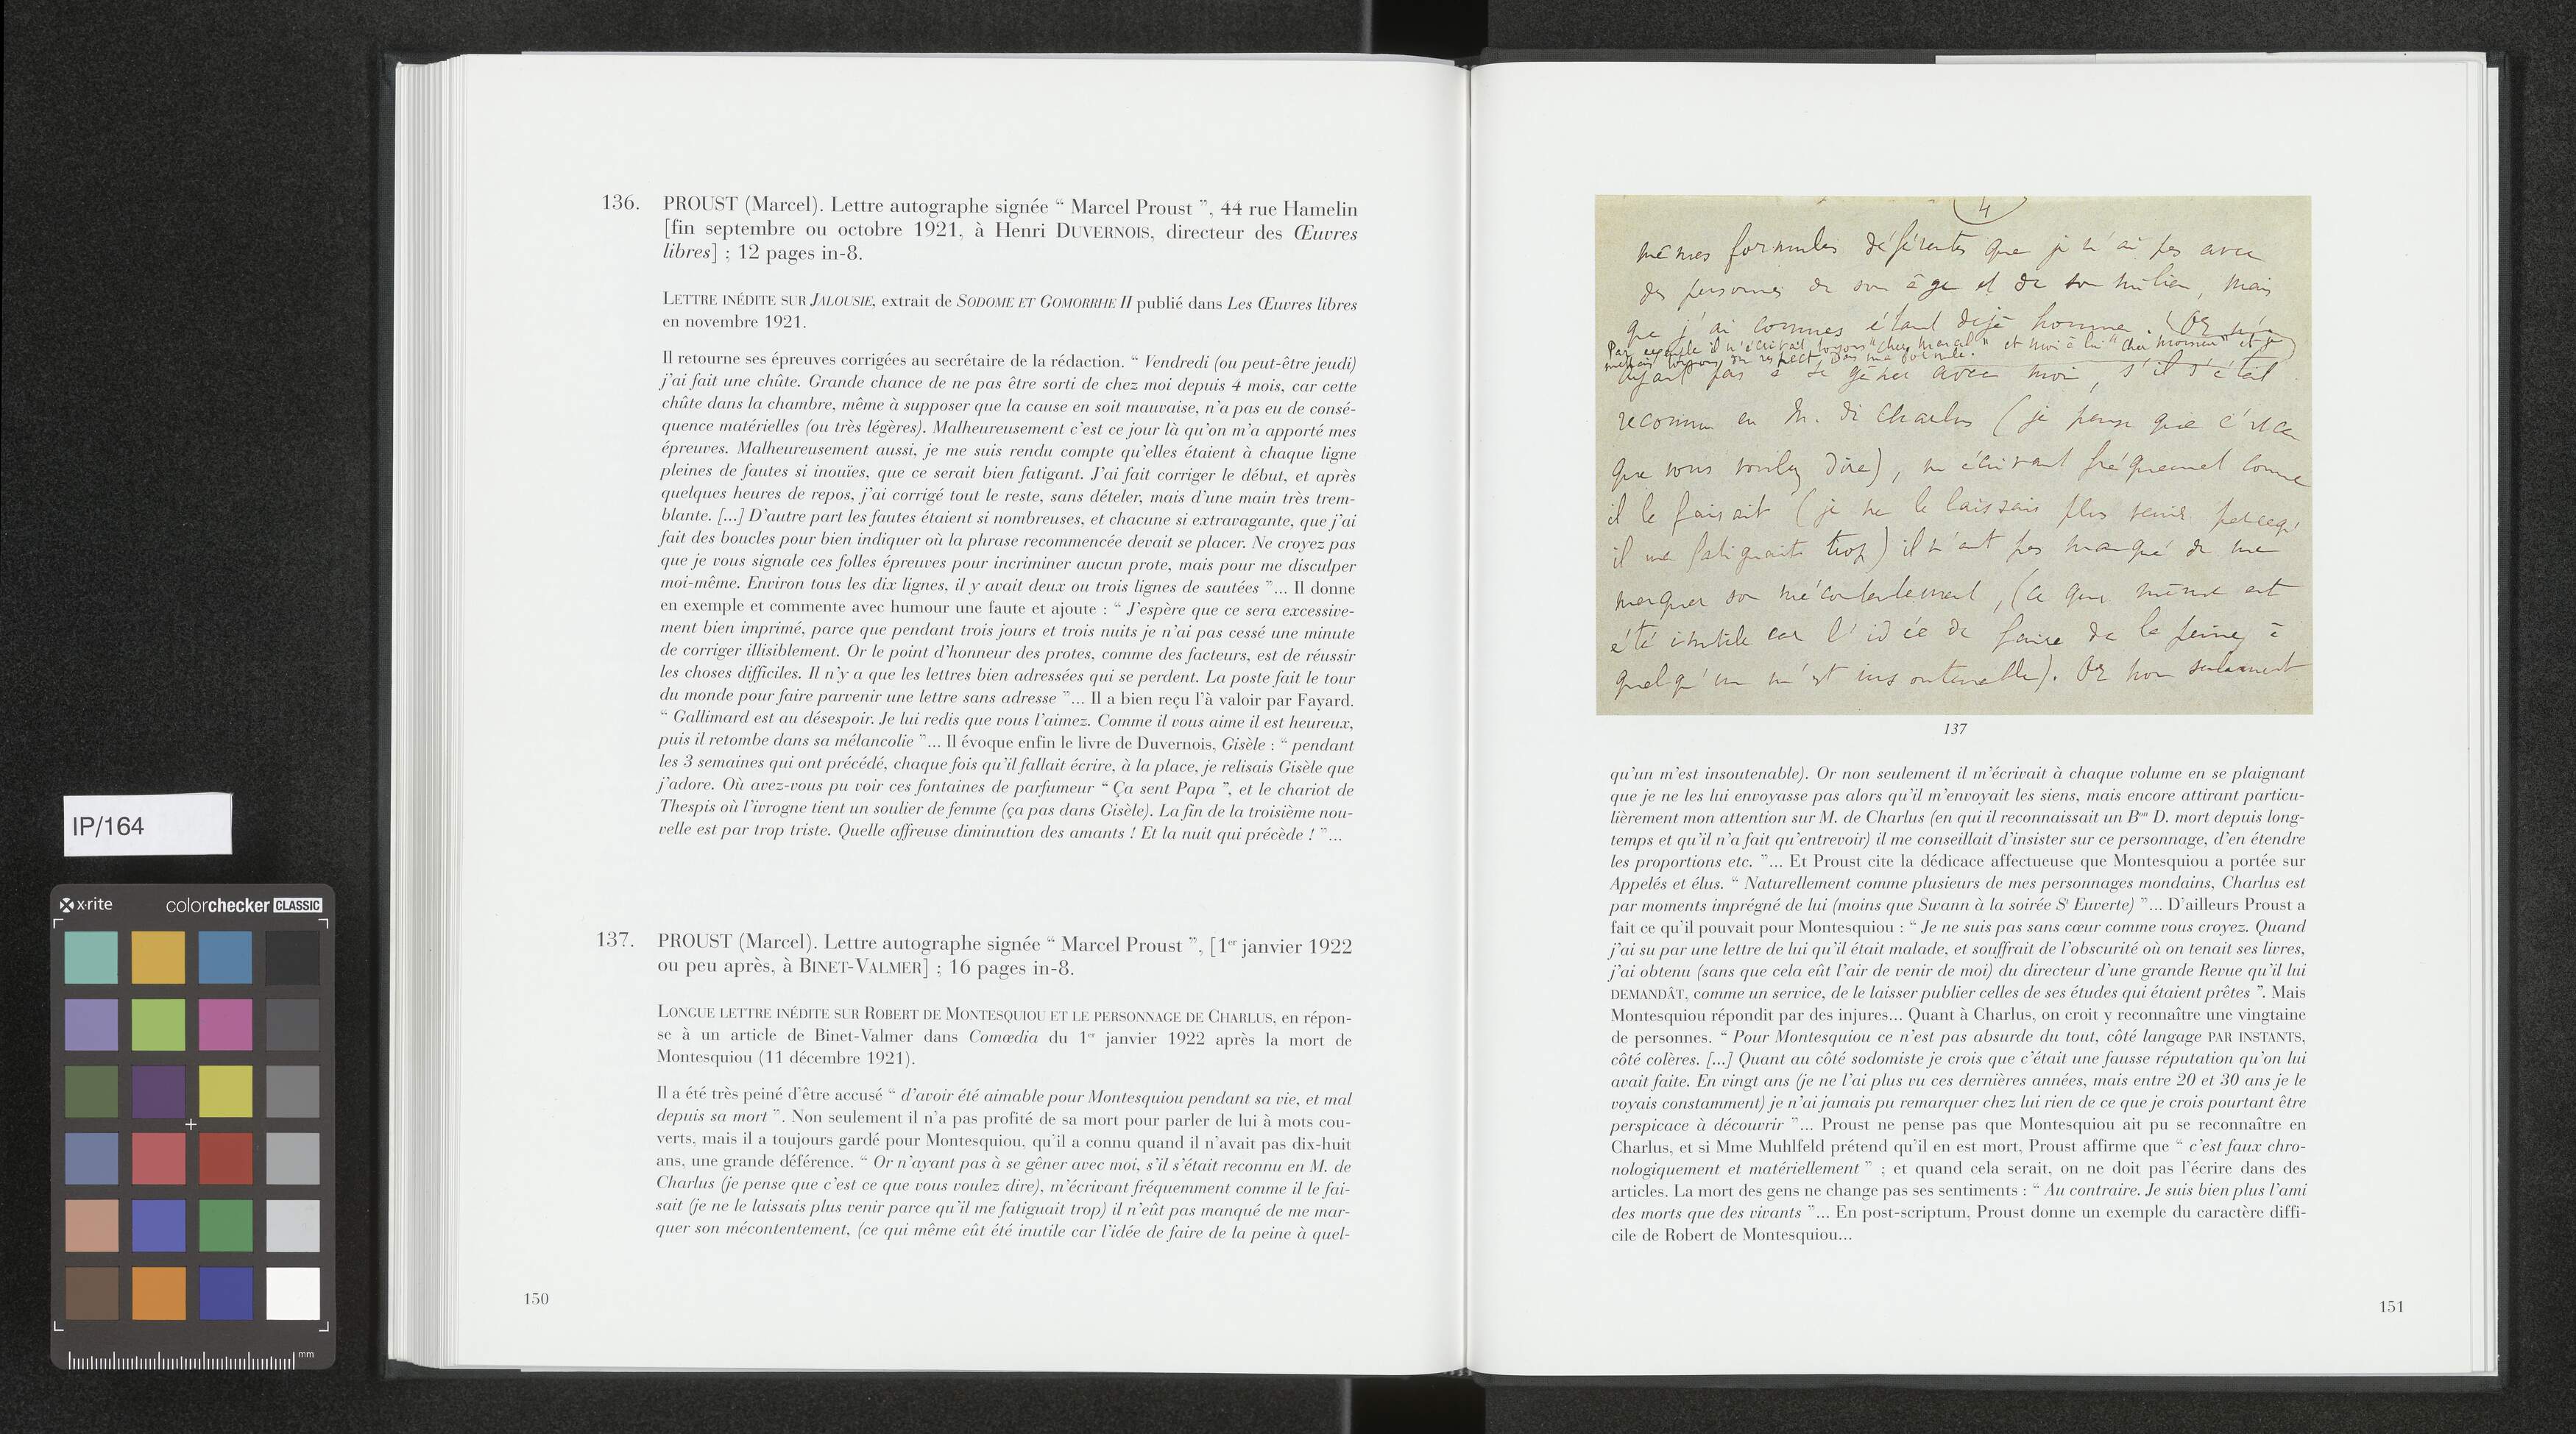 136. PROUST (Marcel). Lettre autographe signée “ Marcel Proust ”, 44 rue Hamelin
[fin septembre ou octobre 1921, à Henri DUVERNOIS, directeur des Œuvres
libres] ; 12 pages in-8.
LETTRE INÉDITE SUR JALOUSIE, extrait de SODOME ET GOMORRHE II publié dans Les Œuvres libres
en novembre 1921.
Il retourne ses épreuves corrigées au secrétaire de la rédaction. “ Vendredi (ou peut-être jeudi)
j’ai fait une chûte. Grande chance de ne pas être sorti de chez moi depuis 4 mois, car cette
chûte dans la chambre, même à supposer que la cause en soit mauvaise, n’a pas eu de consé-
quence matérielles (ou très légères). Malheureusement c’est ce jour là qu’on m’a apporté mes
épreuves. Malheureusement aussi, je me suis rendu compte qu’elles étaient à chaque ligne
pleines de fautes si inouïes, que ce serait bien fatigant. J’ai fait corriger le début, et après
quelques heures de repos, j’ai corrigé tout le reste, sans dételer, mais d’une main très trem-
blante. [...] D’autre part les fautes étaient si nombreuses, et chacune si extravagante, que j’ai
fait des boucles pour bien indiquer où la phrase recommencée devait se placer. Ne croyez pas
que je vous signale ces folles épreuves pour incriminer aucun prote, mais pour me disculper
moi-même. Environ tous les dix lignes, il y avait deux ou trois lignes de sautées ”... Il donne
en exemple et commente avec humour une faute et ajoute : “ J’espère que ce sera excessive-
ment bien imprimé, parce que pendant trois jours et trois nuits je n’ai pas cessé une minute
de corriger illisiblement. Or le point d’honneur des protes, comme des facteurs, est de réussir
les choses difficiles. Il n’y a que les lettres bien adressées qui se perdent. La poste fait le tour
du monde pour faire parvenir une lettre sans adresse ”... Il a bien reçu l’à valoir par Fayard.
“ Gallimard est au désespoir. Je lui redis que vous l’aimez. Comme il vous aime il est heureux,
puis il retombe dans sa mélancolie ”... Il évoque enfin le livre de Duvernois, Gisèle : “ pendant
les 3 semaines qui ont précédé, chaque fois qu’il fallait écrire, à la place, je relisais Gisèle que
j’adore. Où avez-vous pu voir ces fontaines de parfumeur “ Ça sent Papa ”, et le chariot de
Thespis où l’ivrogne tient un soulier de femme (ça pas dans Gisèle). La fin de la troisième nou-
velle est par trop triste. Quelle affreuse diminution des amants ! Et la nuit qui précède ! ”...
137. PROUST (Marcel). Lettre autographe signée “ Marcel Proust ”, [1er janvier 1922
ou peu après, à BINET-VALMER] ; 16 pages in-8.
LONGUE LETTRE INÉDITE SUR ROBERT DE MONTESQUIOU ET LE PERSONNAGE DE CHARLUS, en répon-
se à un article de Binet-Valmer dans Comœdia du 1er janvier 1922 après la mort de
Montesquiou (11 décembre 1921).
Il a été très peiné d’être accusé “ d’avoir été aimable pour Montesquiou pendant sa vie, et mal
depuis sa mort ”. Non seulement il n’a pas profité de sa mort pour parler de lui à mots cou-
verts, mais il a toujours gardé pour Montesquiou, qu’il a connu quand il n’avait pas dix-huit
ans, une grande déférence. “ Or n’ayant pas à se gêner avec moi, s’il s’était reconnu en M. de
Charlus (je pense que c’est ce que vous voulez dire), m’écrivant fréquemment comme il le fai-
sait (je ne le laissais plus venir parce qu’il me fatiguait trop) il n’eût pas manqué de me mar-
quer son mécontentement, (ce qui même eût été inutile car l’idée de faire de la peine à quel-
150
4
mêmes formules déférentes que je n’ai pas avec
des personnes de son âge et de son milieu, mais
que j’ai connues étant déjà homme. (Or n’a
Par exemple il m’écrivait toujours “cher Marcel” et moi à lui “cher Monsieur” et je
ayant pas à se gêner avec moi, s’il s’était
reconnu en M. de Charlus (je pense que c’est ce
que vous voulez dire), m’écrivant fréquemmet comme
il le faisait (je ne le laissais plus venir parcequ’
il me fatiguait trop) il n’eut pas manqué de me
marquer son mécontentement, (ce qui même eut
été inutile car l’idée de faire de la peine à
quelqu’un m’est insoutenable). Or non seulement
137
qu’un m’est insoutenable). Or non seulement il m’écrivait à chaque volume en se plaignant
que je ne les lui envoyasse pas alors qu’il m’envoyait les siens, mais encore attirant particu-
lièrement mon attention sur M. de Charlus (en qui il reconnaissait un Bon D. mort depuis long-
temps et qu’il n’a fait qu’entrevoir) il me conseillait d’insister sur ce personnage, d’en étendre
les proportions etc. ”... Et Proust cite la dédicace affectueuse que Montesquiou a portée sur
Appelés et élus. “ Naturellement comme plusieurs de mes personnages mondains, Charlus est
par moments imprégné de lui (moins que Swann à la soirée St Euverte) ”... D’ailleurs Proust a
fait ce qu’il pouvait pour Montesquiou : “ Je ne suis pas sans cœur comme vous croyez. Quand
j’ai su par une lettre de lui qu’il était malade, et souffrait de l’obscurité où on tenait ses livres,
j’ai obtenu (sans que cela eût l’air de venir de moi) du directeur d’une grande Revue qu’il lui
DEMANDÂT, comme un service, de le laisser publier celles de ses études qui étaient prêtes ”. Mais
Montesquiou répondit par des injures... Quant à Charlus, on croit y reconnaître une vingtaine
de personnes. “ Pour Montesquiou ce n’est pas absurde du tout, côté langage PAR INSTANTS,
côté colères. [...] Quant au côté sodomiste je crois que c’était une fausse réputation qu’on lui
avait faite. En vingt ans (je ne l’ai plus vu ces dernières années, mais entre 20 et 30 ans je le
voyais constamment) je n’ai jamais pu remarquer chez lui rien de ce que je crois pourtant être
perspicace à découvrir ”... Proust ne pense pas que Montesquiou ait pu se reconnaître en
Charlus, et si Mme Muhlfeld prétend qu’il en est mort, Proust affirme que “ c’est faux chro-
nologiquement et matériellement ” ; et quand cela serait, on ne doit pas l’écrire dans des
articles. La mort des gens ne change pas ses sentiments : “ Au contraire. Je suis bien plus l’ami
des morts que des vivants ”... En post-scriptum, Proust donne un exemple du caractère diffi-
cile de Robert de Montesquiou...
151
IP/164
x-rite colorchecker CLASSIC
mm